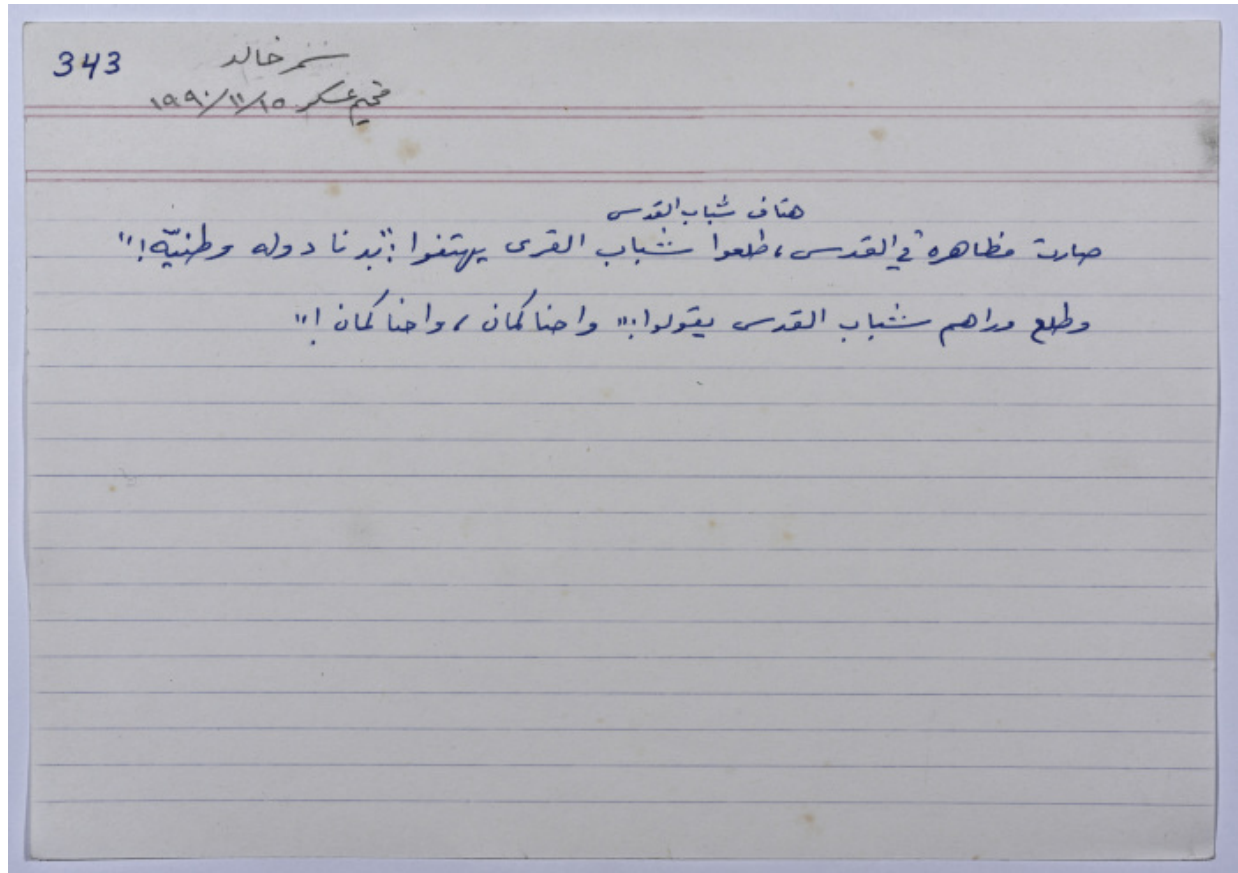 343
خالد
مخيم عسكر ١٩٩٠/١١/١٥
هتاف شباب القدس
صارت مظاهره في القدس، طلعوا شباب القرى يهتفوا: "بدنا دوله وطنيّه!"
وطلع وراهم شباب القدس يقولوا: "واحنا كمان، واحنا كمان!"